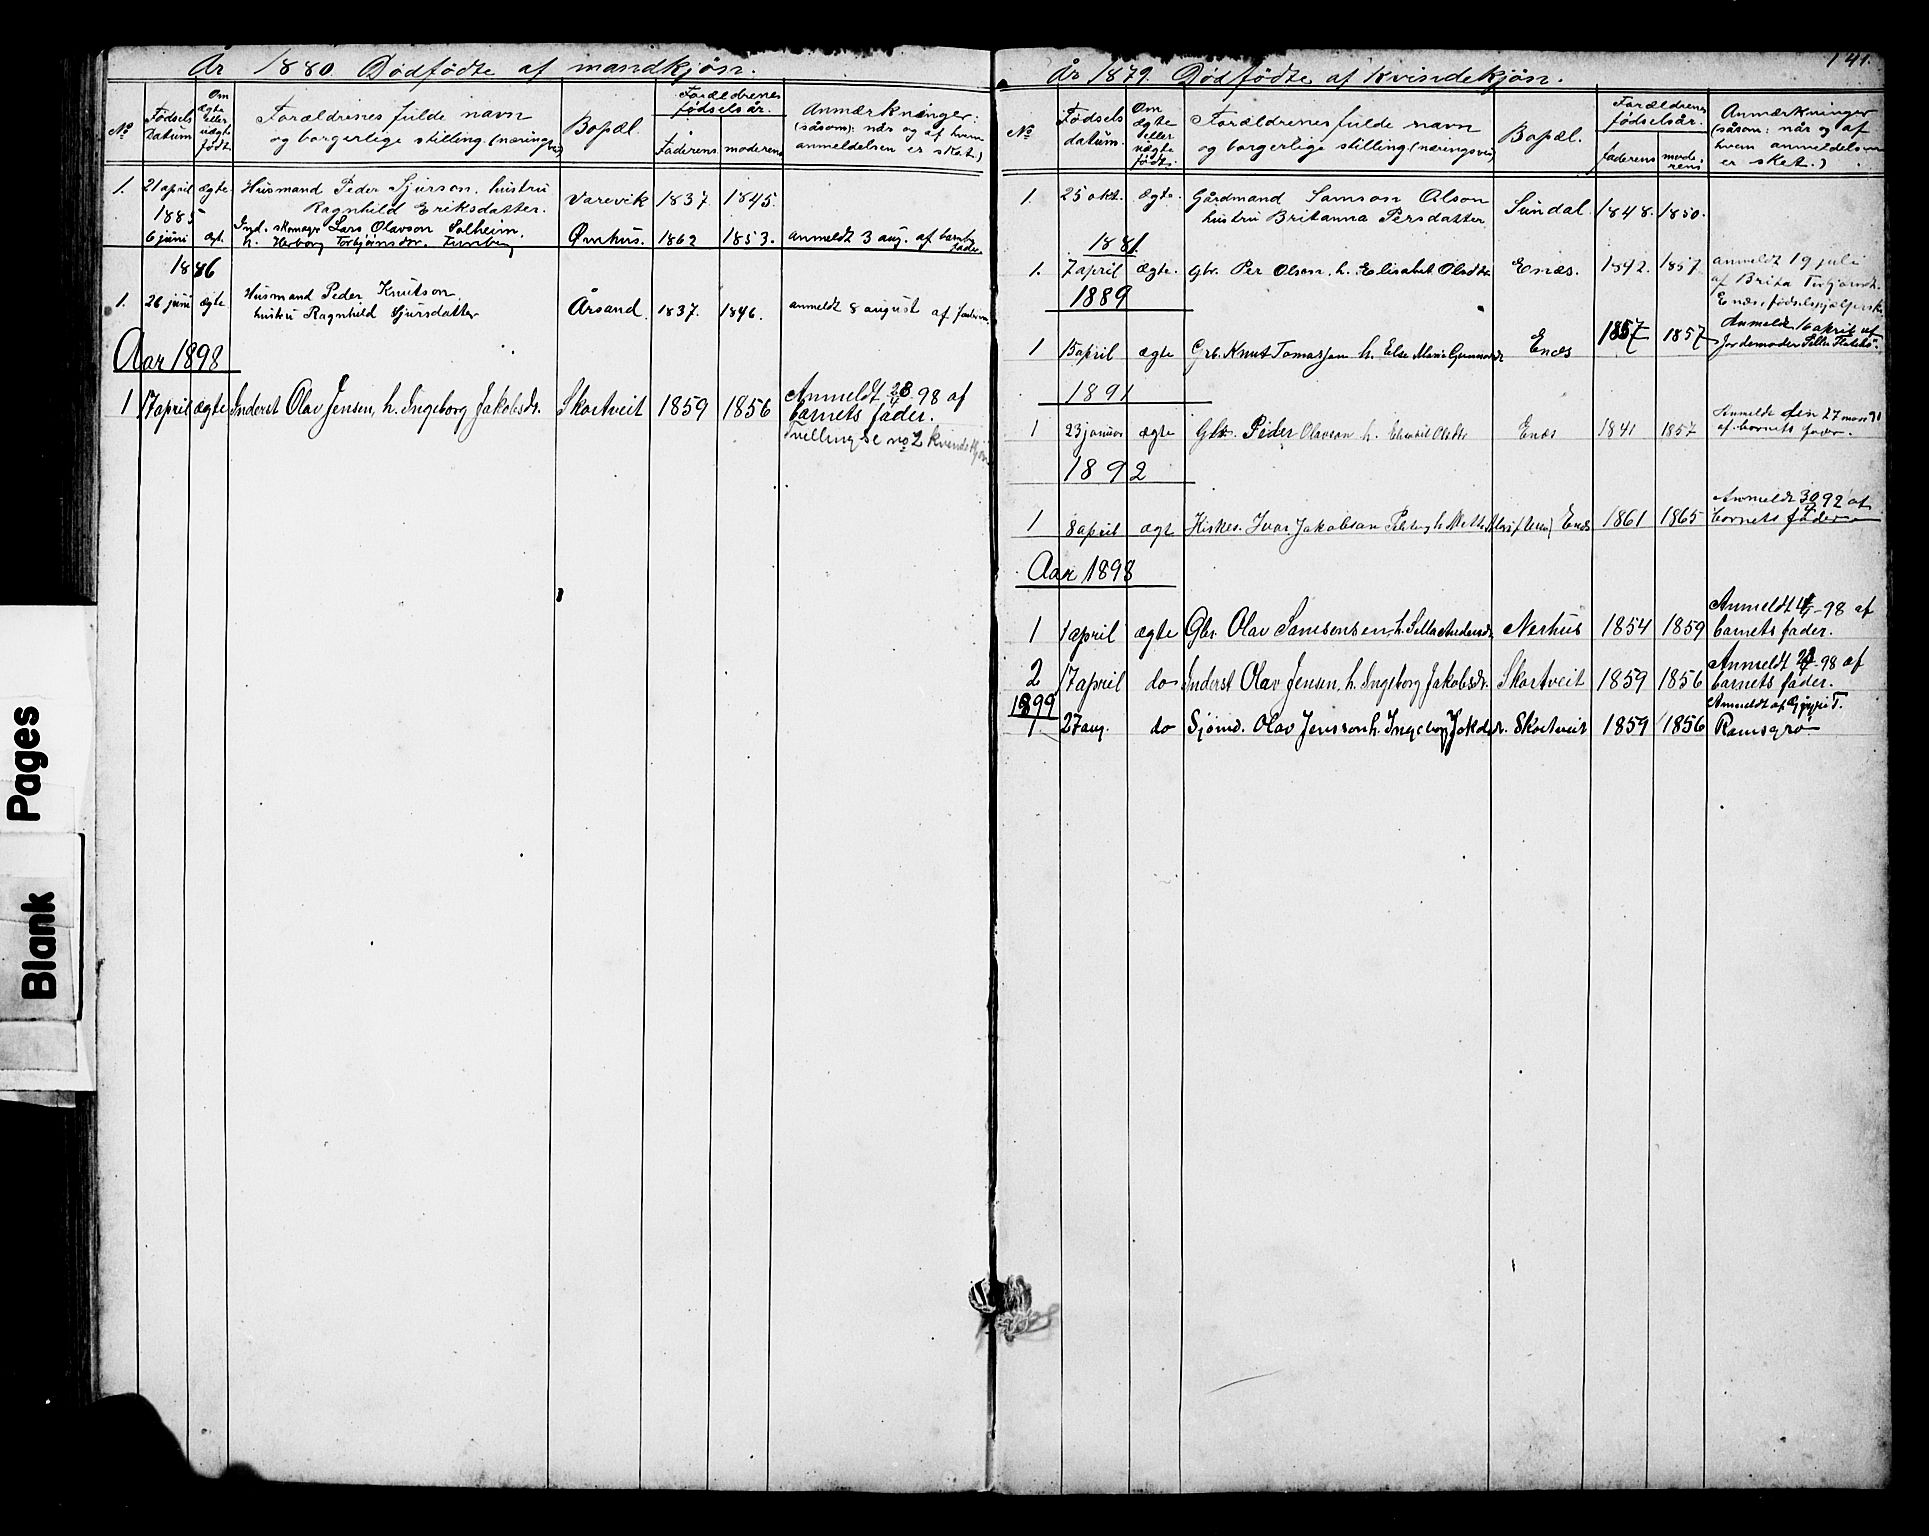 År 1880. Dødfödte af mandkjön.
No
Födsels Datum
Om ægte eller uægte födt
Forældrenes fulde navn
og borgerlige stilling (næringsvei)
Bopæl.
Forældrenes födselsår.
Faderens moderens
Anmærkninger:
(såsom): når og af hvem
anmeldelsen er sket.)
1. 21 april ægte Husmand Peder Sjurson, hustru
Ragnhild Eriksdatter. Varevik 1837. 1845.
1885
6 juni ægt. Ind. skomager Lars Olavson Solheim,
h. Herborg Torbjörnsdtr. Ømhus. 1862 1853. anmeldt 3 aug. af barnets
fader
1886
1. 26 juni ægte Husmand Peder Knutson
hustru Ragnhild Sjursdatter Årsand. 1837. 1846. anmeldt 8 august af faderen
Aar 1898
1 17 april ægte Inderst Olav Jensen, h. Ingeborg Jakobsdr. Skartveit 1859 1856 Anmeldt 28/4 98 af
barnets fader.
Tvilling se no 2 kvindekjön
141.
År 1879. Dødfödte af kvindekjön.
No
Födsels datum.
Om ægte eller uægte födt.
Forældrenes fulde navn
og borgerlige stilling (næringsvei)
Bopæl.
Forældrenes födselsår.
faderens moderens
Anmærkninger
(såsom: når og af
hvem anmeldelsen
er sket.)
1. 25 okt. ægte. Gårdmand Samson Olson
hustru Britanna Persdatter Sundal 1848. 1850.
1881.
1. 7 april ægte. Gbr. Per Olson, h. Elisabet Olsdtr Enæs. 1842. 1857 anmeldt 19 juli
af Brita Torbjørnsdr.
Enæs, födselshjælperske
1889
1 15 april ægte Grb. Knut Tomassen h. Else Marie Gunnarsdr Enæs 1857 1857 Anmeldt 16 april af
Jordemoder
1891
1 23 januar ægte Gbr. Peder Olavson h. Elisabet Olsdtr Enæs 1841 1857 Anmeldt den 27 mars 91
af barnets fader.
1892
1 8 april ægte Kirkes. Ivar Jakobsen h. Enæs 1861 1865 Anmeldt 30/4 92 af
barnets fader
Aar 1898
1 1 april ægte Gbr. Olav Samsonsen, h. Silla Andersdr. Nerhus 1854 1859 Anmeldt 98 af
barnets fader.
2 17 april do Inderst Olav Jensen, h. Ingeborg Jakobsdr. Skartveit 1859 1856 Anmeldt 98 af
barnets fader.
1899
1 27 aug. do Sjömd. Olav Jensson h. Ingeborg Jakobsdr. Skartveit 1859 1856 Anmeldt af
Ramsgrø
Blank Pages